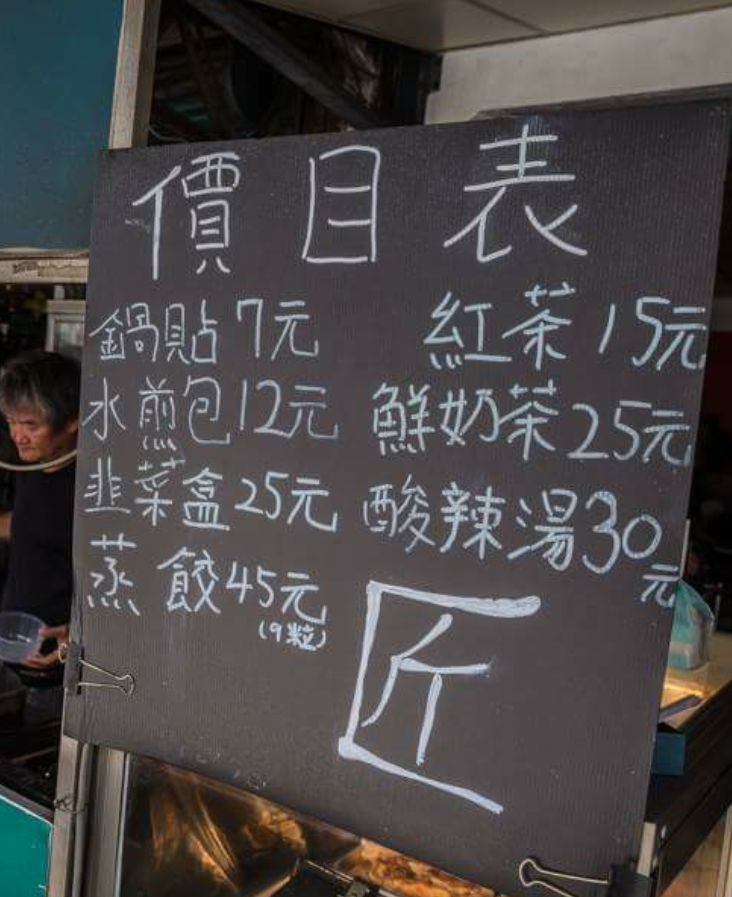 價目表
鍋貼7元
水煎包12元
韭菜盒25元
蒸餃45元
(9粒)
紅茶15元
鮮奶茶25元
酸辣湯30元
匠